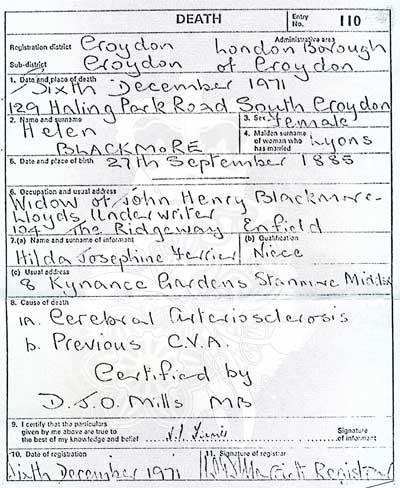 DEATH
Entry No. 110
Registration district Croydon
Administrative area
London Borough
Sub-district Croydon of Croydon
1. Date and place of death
Sixth December 1971
129 Haling Park Road South Croydon
2. Name and surname
Helen
BLACKMORE
3. Sex Female
4. Maiden surname of woman who has married Lyons
5. Date and place of birth 27th September 1885
6. Occupation and usual address
Widow of John Henry Blackmore-
Lloyds Underwriter
124 The Ridgeway Enfield
7.(a) Name and surname of informant
(b) Qualification
Hilda Josephine Ferrier Niece
(c) Usual address
8 Kynance Gardens Stanmore Middlsx
8. Cause of death
1A. Cerebral Arteriosclerosis
b. Previous C.V.A.
Certified by
D.J.O. Mills MB
9. I certify that the particulars
given by me above are true to
the best of my knowledge and belief
Signature
of informant
10. Date of registration
11. Signature of registrar
Sixth December 1971
Registrar